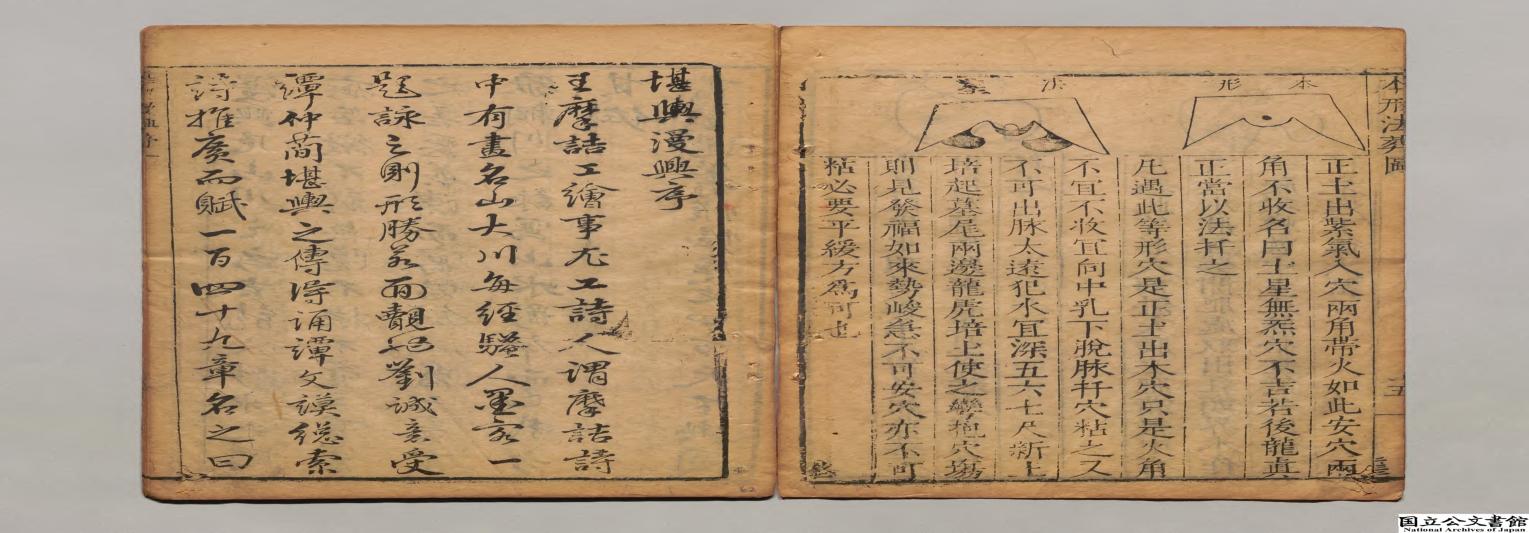 本形法葬圖
本形
法葬
正土出紫氣入穴兩角帶火如此安穴兩
角不收名曰土星無炁穴不吉若後龍真
正當以法扦之
凡遇此等形穴是正土出木穴只是火角
不宜不收宜向中乳下脫脉扦穴粘之又
不可出脉太遠犯水宜深五六七尺新土
培起墓尾兩邊龍虎培土使之彎抱穴塲
則見發福如來勢峻急不可安穴亦不可
粘必要平緩方為可也
五
堪輿漫興序
王摩詰工繪事尤工詩人謂摩詰詩
中有畫名山大川每經騷人墨客一
題詠之則形勝若面覿也劉誠意受
譚仲簡堪輿之傳得誦譚文謨總索
詩推廣而賦一百四十九章名之曰
国立公文書館
National Archives of Japan